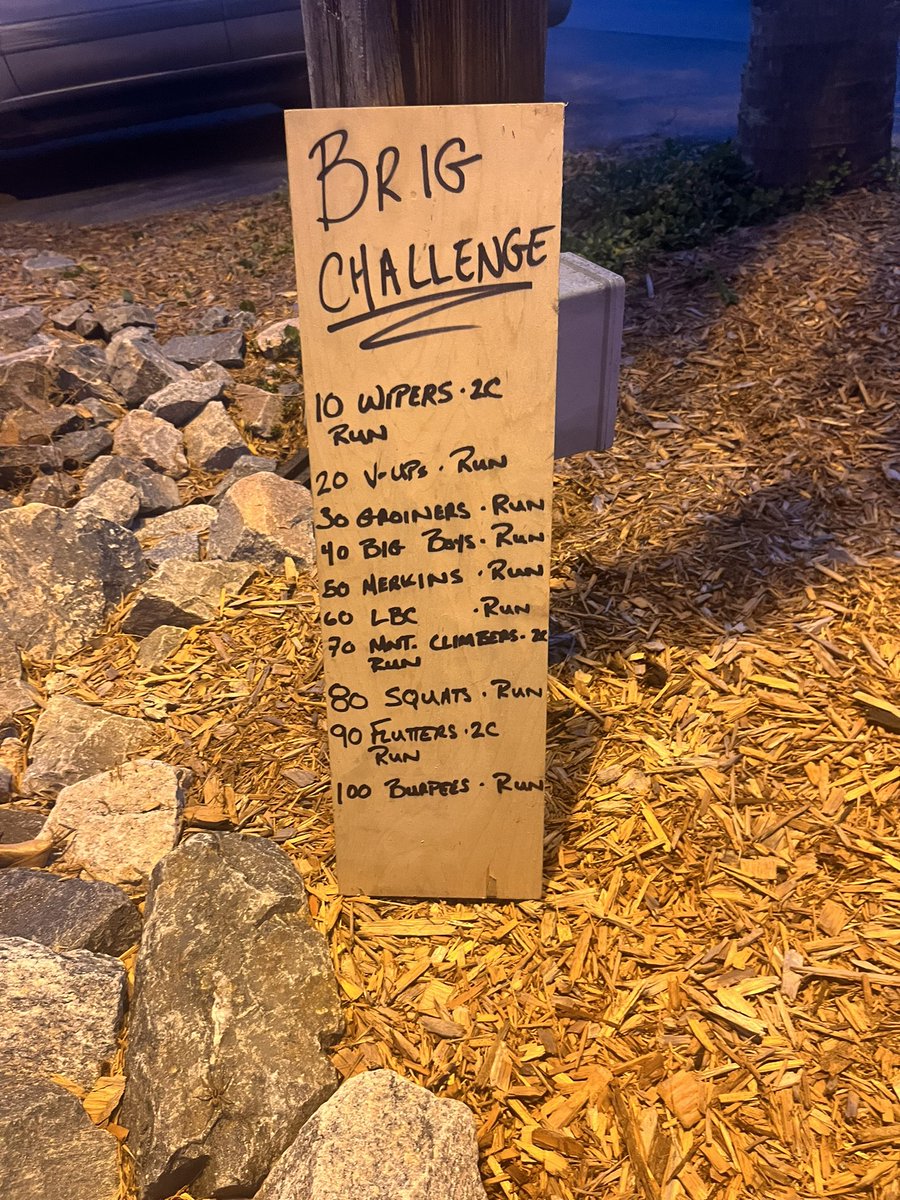 BRIG
CHALLENGE
10 WIPERS · 2C
RUN
20 V-UPS · RUN
30 GROINERS · RUN
40 BIG BOYS · RUN
50 MERKINS · RUN
60 LBC · RUN
70 MNT. CLIMBERS · 2C
RUN
80 SQUATS · RUN
90 FLUTTERS · 2C
RUN
100 BURPEES · RUN